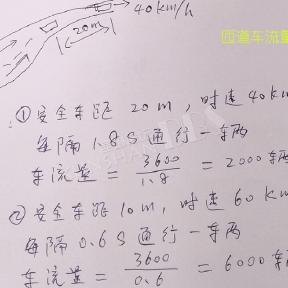 40km/h
20m
四道车流量
①安全车距 20m, 时速40k
每隔1.8S通行一车两
车流量 = 3600/1.8 = 2000车辆
②安全车距10m, 时速60K
每隔0.6S通行一车两
车流量 = 3600/0.6 = 6000车